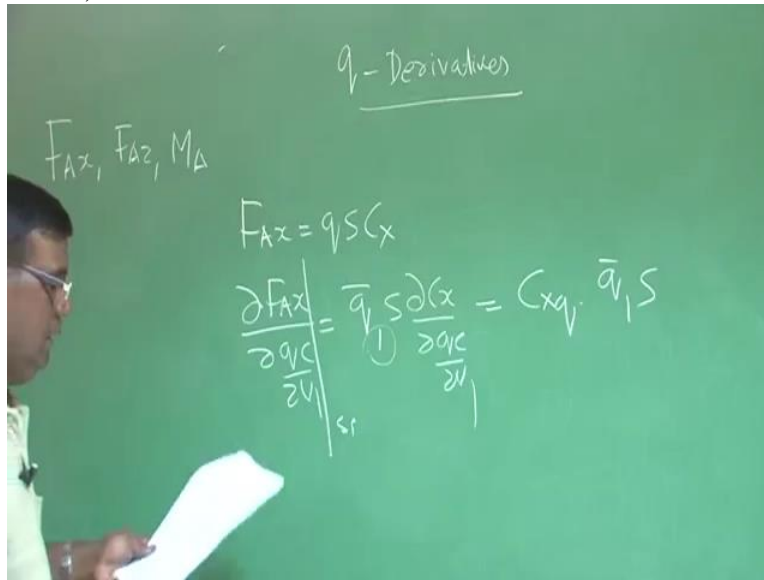 q - Derivatives
F_Ax, F_Az, M_A
F_Ax = qSC_x
∂F_Ax / ∂(qc/2U_1) |_S1 = q̄_① S ∂C_x / ∂(qc/2U_1) = C_xq · q̄_1 S